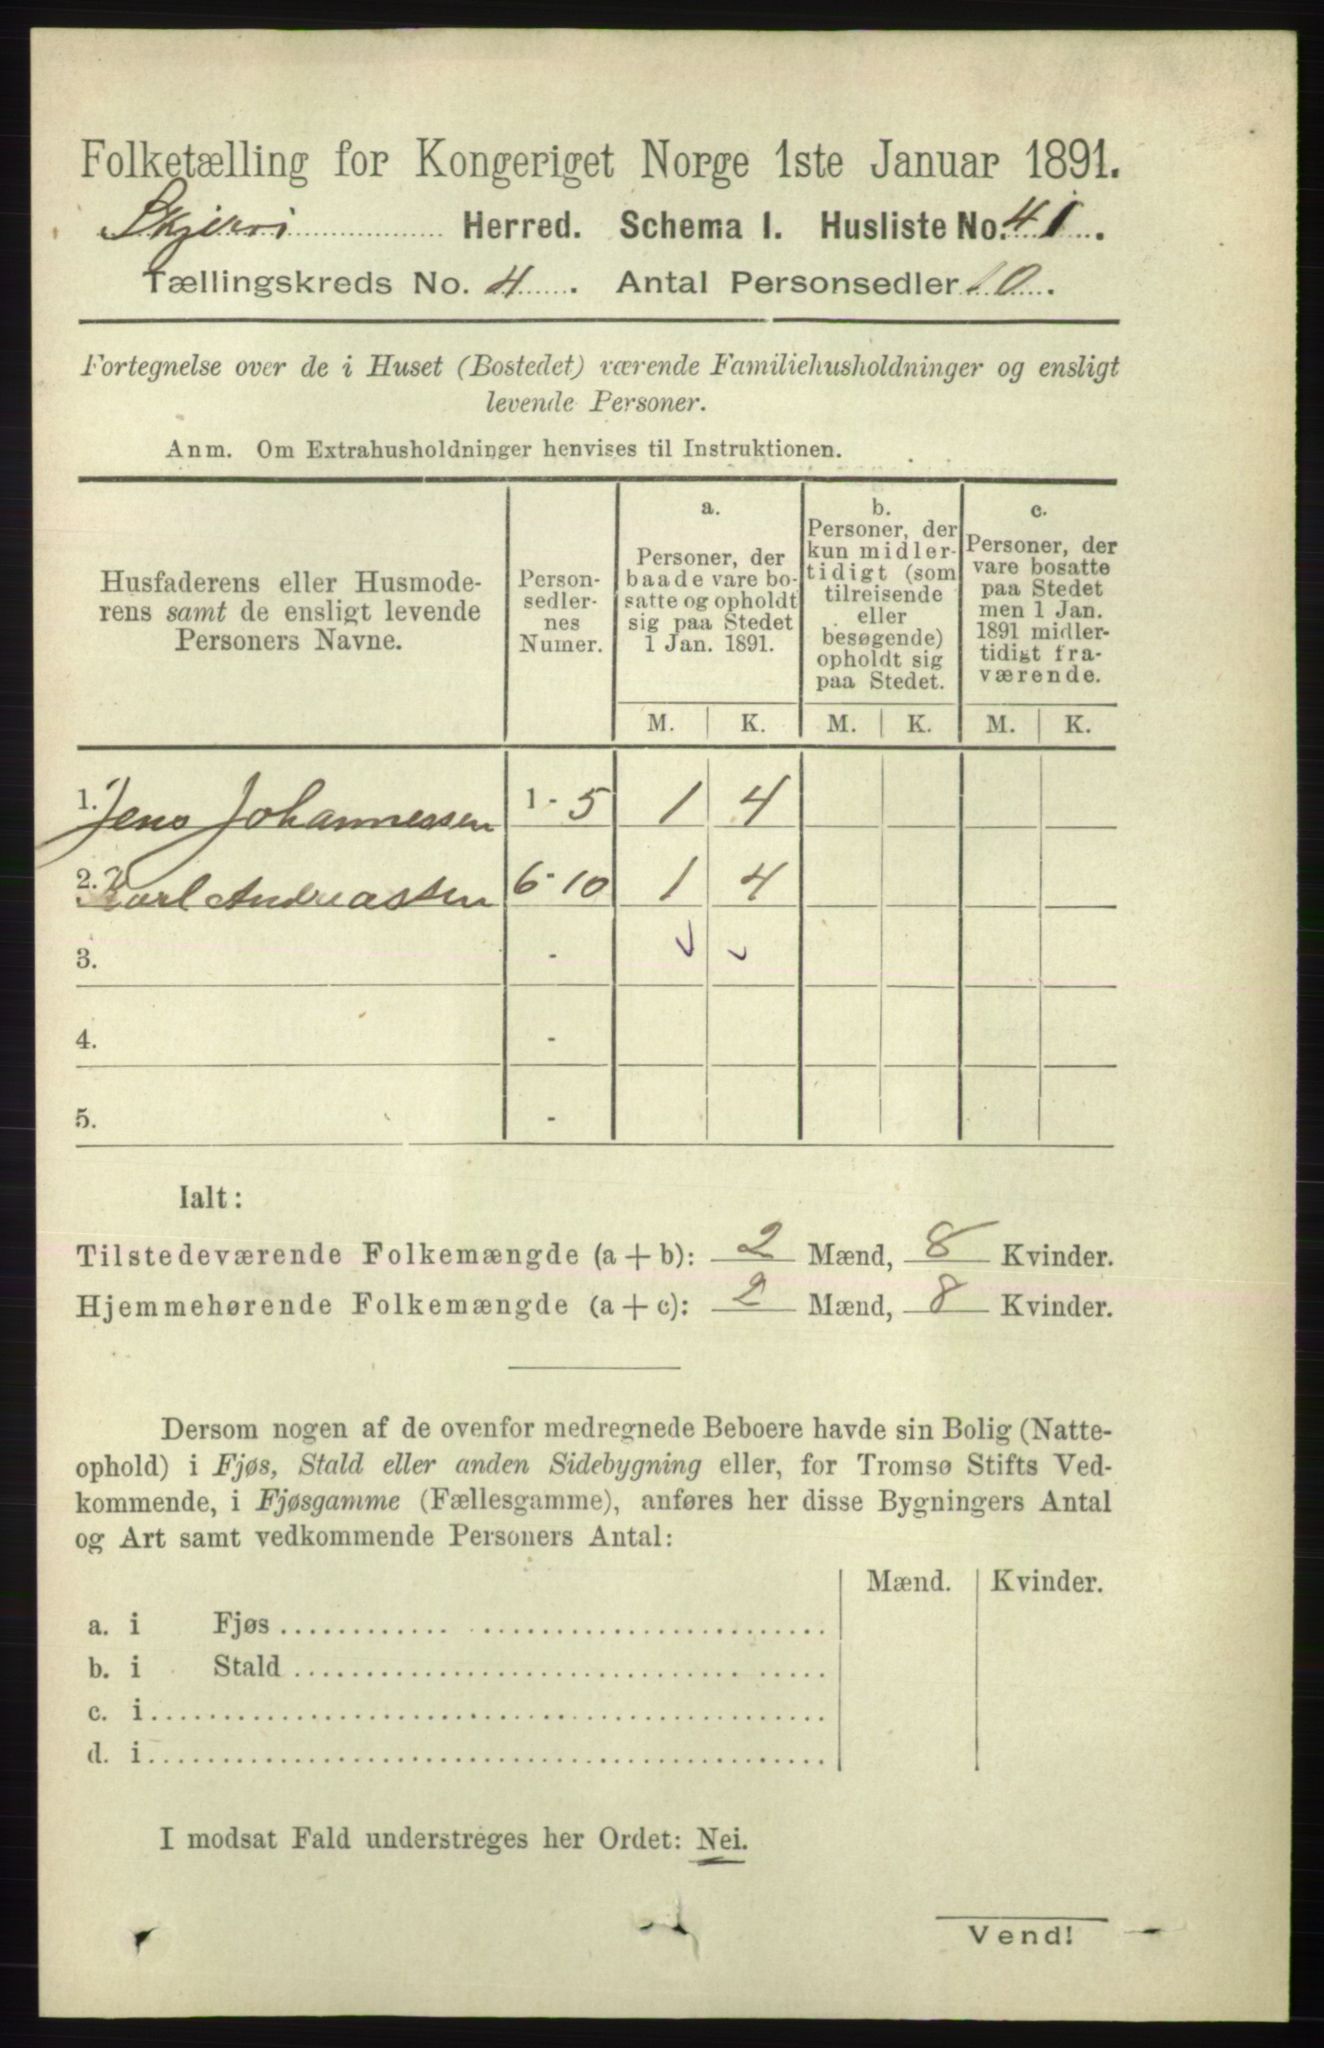 Folketælling for Kongeriget Norge 1ste Januar 1891.
Herred. Schema I. Husliste No. 41.
Tællingskreds No. 4. Antal Personsedler 10.
Fortegnelse over de i Huset (Bostedet) værende Familiehusholdninger og ensligt
levende Personer.
Anm. Om Extrahusholdninger henvises til Instruktionen.
Husfaderens eller Husmode-
rens samt de ensligt levende
Personers Navne.
Person-
sedler-
nes
Numer.
a.
Personer, der
baade vare bo-
satte og opholdt
sig paa Stedet
1 Jan. 1891.
b.
Personer, der
kun midler-
tidigt (som
tilreisende
eller
besøgende)
opholdt sig
paa Stedet.
c.
Personer, der
vare bosatte
paa Stedet
men 1 Jan.
1891 midler-
tidigt fra-
værende.
M. K. M. K. M. K.
1. Jens Johannessen 1 - 5 1 4
2. Karl Andreassen 6 - 10 1 4
3. -
4. -
5. -
Ialt:
Tilstedeværende Folkemængde (a + b): 2 Mænd, 8 Kvinder.
Hjemmehørende Folkemængde (a + c): 2 Mænd, 8 Kvinder.
Dersom nogen af de ovenfor medregnede Beboere havde sin Bolig (Natte-
ophold) i Fjøs, Stald eller anden Sidebygning eller, for Tromsø Stifts Ved-
kommende, i Fjøsgamme (Fællesgamme), anføres her disse Bygningers Antal
og Art samt vedkommende Personers Antal:
Mænd. Kvinder.
a. i Fjøs
b. i Stald
c. i
d. i
I modsat Fald understreges her Ordet: Nei.
Vend!